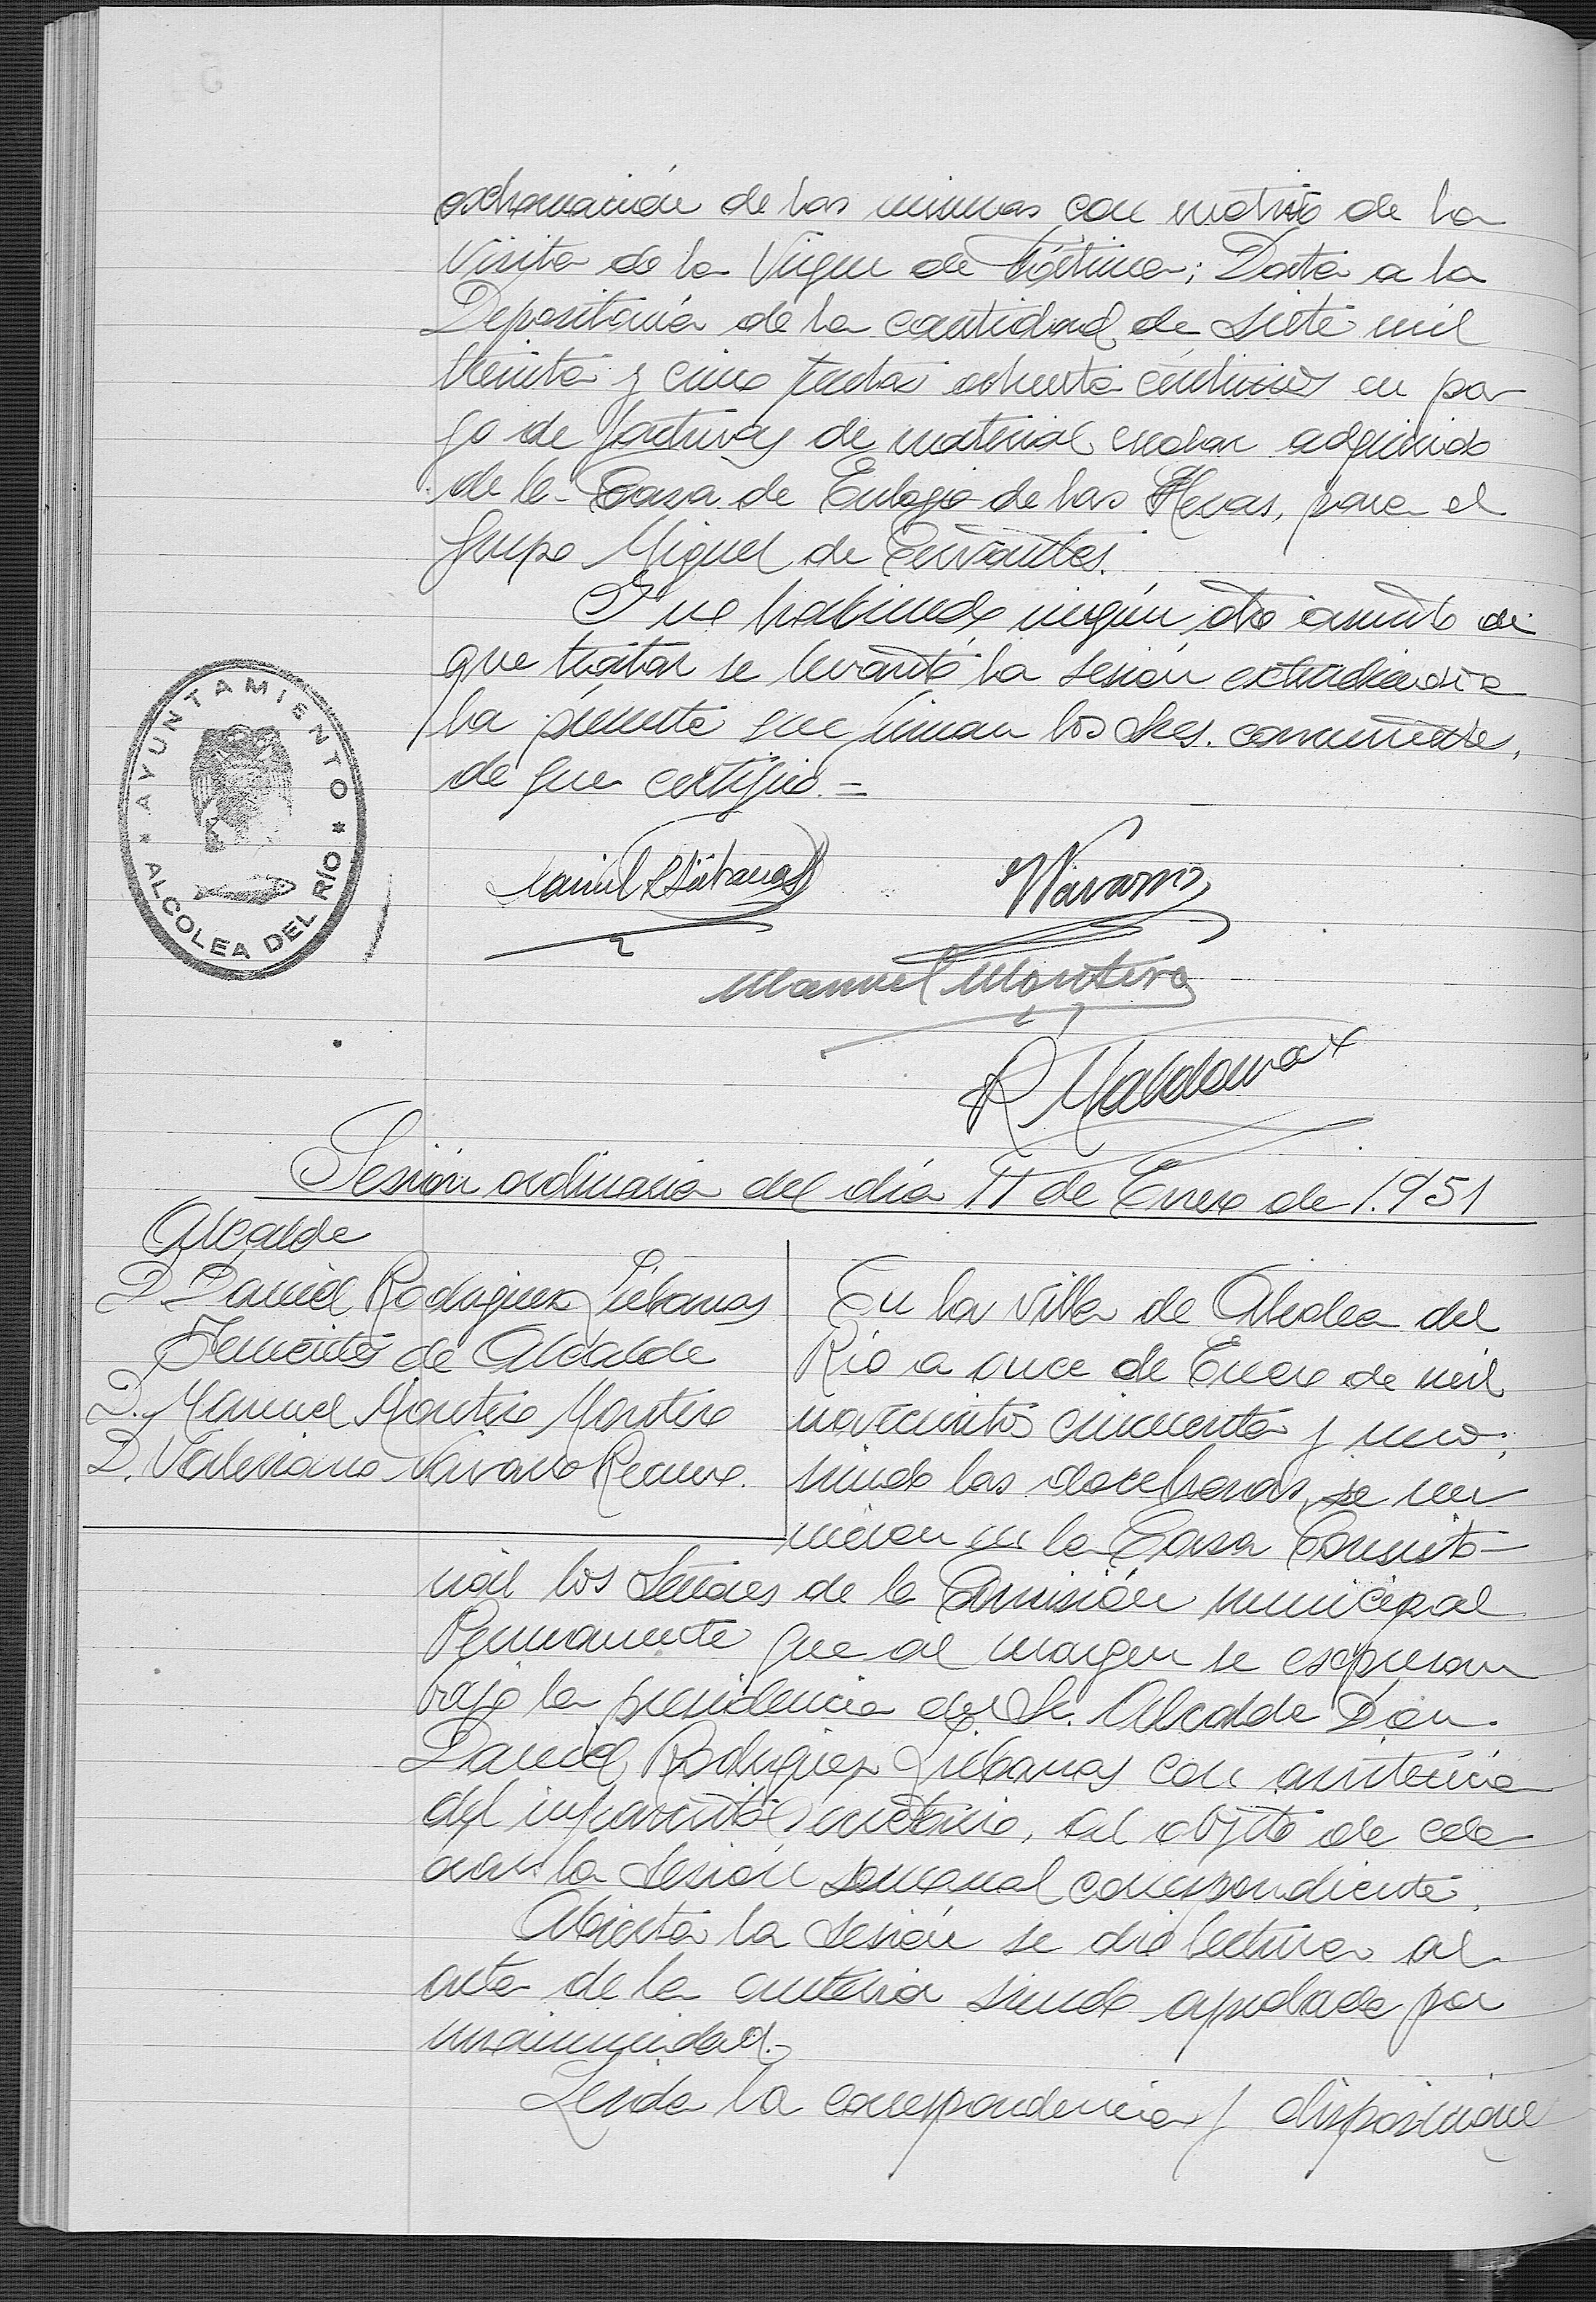 exhornación de las mismas con motivo de la
Visita de la Virgen de Fátima; Data a la
Depositaría de la cantidad de siete mil
treinta y cinco pesetas ochenta céntimos en pa-
go de facturas de material escolar adquirido
de la Casa de Eulogio de las Heras, para el
Grupo Miguel de Cervantes.
Y no habiendo ningún otro asunto de
que tratar se levantó la sesión extendiendose
la presente que firman los Sres. concurrentes,
de que certifico.=
AYUNTAMIENTO
* ALCOLEA DEL RÍO *
Daniel R Liébanas
V Navarro
Manuel Montero
R Maldonado
Sesión ordinaria del día 11 de Enero de 1.951
Alcalde
D. Daniel Rodriguez Liebanas
Tenientes de Alcalde
D. Manuel Montero Montero
D. Valeriano Navarro
En la villa de Alcolea del
Río a once de Enero de mil
novecientos cincuenta y uno;
siendo las doce horas, se reu
nieron en la Casa Consisto-
rial los Señores de la Comisión municipal
Permanente que al margen se expresan
bajo la presidencia del Sr. Alcalde Don
Daniel Rodriguez Liebanas con asistencia
del infrascrito Secretario, al objeto de cele
brar la sesión semanal correspondiente.
Abierta la sesión se dio lectura al
acta de la anterior siendo aprobada por
unanimidad.-
Leida la correspondencia y disposiciones